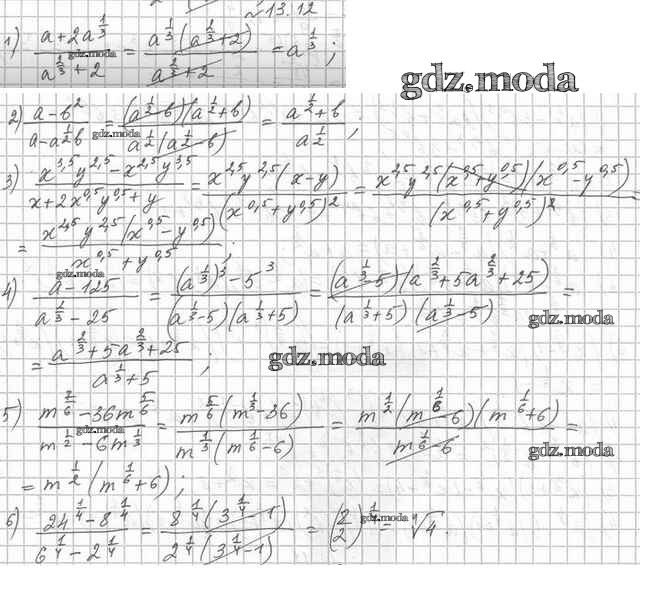 №13.12
1) (a+2a^(1/3))/(a^(1/3)+2) = (a^(1/3)(a^(2/3)+2))/(a^(2/3)+2) = a^(1/3);
gdz.moda
gdz.moda
2) (a-b²)/(a-a^(1/2)b) = ((a^(1/2)-b)(a^(1/2)+b))/(a^(1/2)(a^(1/2)-b)) = (a^(1/2)+b)/a^(1/2);
gdz.moda
3) (x^3,5 y^2,5 - x^2,5 y^3,5)/(x+2x^0,5 y^0,5+y) = (x^2,5 y^2,5(x-y))/(x^0,5+y^0,5)² = (x^2,5 y^2,5(x^0,5+y^0,5)(x^0,5-y^0,5))/(x^0,5+y^0,5)² =
= (x^2,5 y^2,5(x^0,5-y^0,5))/(x^0,5+y^0,5);
gdz.moda
4) (a-125)/(a^(2/3)-25) = ((a^(1/3))³-5³)/((a^(1/3)-5)(a^(1/3)+5)) = ((a^(1/3)-5)(a^(2/3)+5a^(2/3)+25))/((a^(1/3)+5)(a^(1/3)-5)) =
gdz.moda
= (a^(2/3)+5a^(2/3)+25)/(a^(1/3)+5);
gdz.moda
5) (m^(7/6)-36m^(5/6))/(m^(1/2)-6m^(1/3)) = (m^(5/6)(m^(1/3)-36))/(m^(1/3)(m^(1/6)-6)) = (m^(1/2)(m^(1/6)-6)(m^(1/6)+6))/(m^(1/6)-6) =
gdz.moda
gdz.moda
= m^(1/2)(m^(1/6)+6);
6) (24^(1/4)-8^(1/4))/(6^(1/4)-2^(1/4)) = (8^(1/4)(3^(1/4)-1))/(2^(1/4)(3^(1/4)-1)) = (8/2)^(1/4) = ⁴√4.
gdz.moda